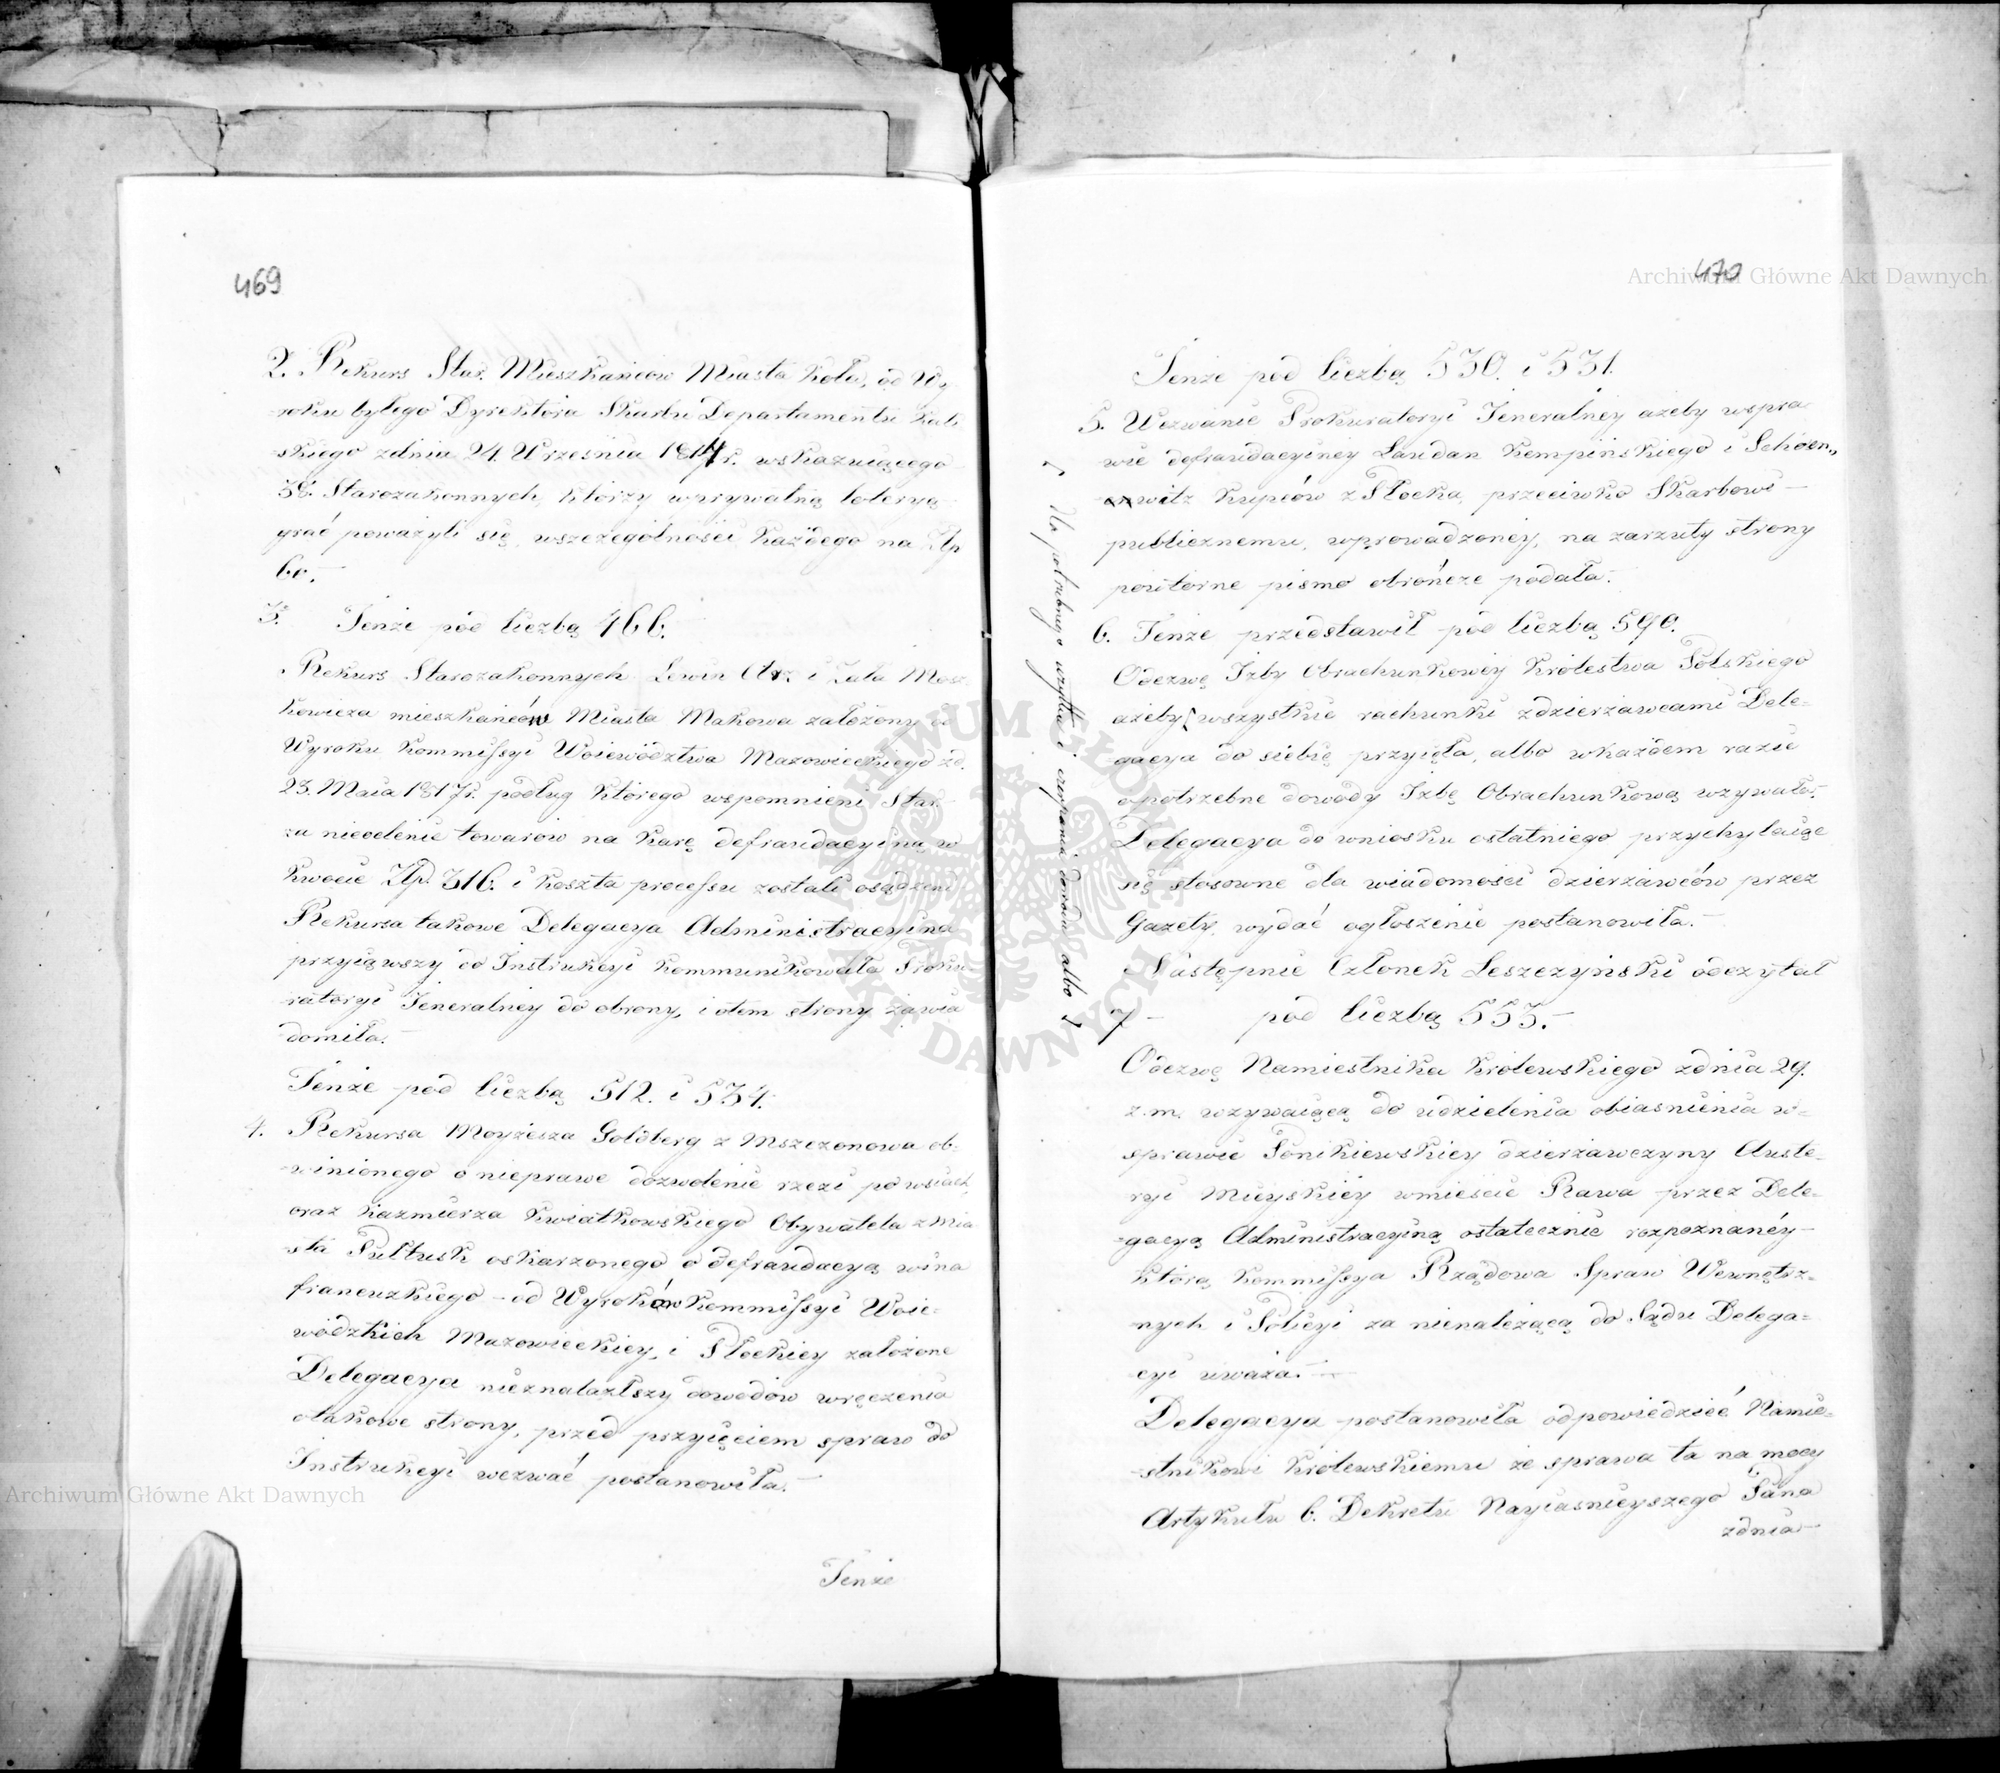 469
2. Rekurs Star. Mieszkańców Miasta Koła, od Wy-
roku byłego Dyrektora Skarbu Departamentu Kali
skiego zdnia 24. Września 1814 r. wskazuiącego
38. Starozakonnych, którzy wprywatną loteryą
grać poważyli się, wszczególności każdego na Złp
60.—
3. Tenże pod liczbą 466.
Rekurs Starozakonnych Lewin i Lala Mosz
kowicza mieszkańców Miasta Makowa założony od
Wyroku Kommissyi Woiewództwa Mazowieckiego zd.
23. Maia 1817 r. podług którego wspomnieni Star.
za niecelenie towarow na karę defraudacyiną w
kwocie Złp. 316. i koszta processu zostali osądzeni
Rekursa takowe Delegacya Administracyina
przyiąwszy do Instrukcyi kommunikowała Proku-
ratoryi Jeneralney do obrony, i otem strony zawia
domiła.—
Tenże pod liczbą 512. i 534.
4. Rekursa Moyżesza Goldberg z Mszczonowa ob-
winionego o nieprawe dozwolenie rzezi po wsiach,
oraz Kazmierza Kwiatkowskiego Obywatela z Mia
sta Pułtusk oskarzonego o defraudacyą wina
francuzkiego – od Wyroków Kommissyi Woie-
wódzkich Mazowieckiey, i Płockiey założone
Delegacya nieznalazłszy dowodów wręczenia
otakowe strony, przed przyięciem spraw do
Instrukcyi wezwać postanowiła.—
Tenże
470
Tenże pod liczbą 530. i 531.
5. Wezwanie Prokuratoryi Jeneralney ażeby wspra
wie defraudacyiney Laudan Kempińskiego i Schoen-
witz kupców z Płocka, przeciwko Skarbowi —
publicznemu, wprowadzoney, na zarzuty strony
powtórne pismo obrończe podała.—
6. Tenże przedstawił pod liczbą 590.
Odezwę Izby Obrachunkowey Królestwa Polskiego
ażeby wszystkie rachunki zdzierzawcami Dele-
gacya do siebie przyięła, albo wkażdem razie
opotrzebne dowody Izbę Obrachunkową wzywała.—
Delegacya do wniosku ostatniego przychylaiąc
się stosowne dla wiadomości dzierzawców przez
Gazety, wydać ogłoszenie postanowiła.—
Następnie Członek Leszczyński odczytał
7 — pod liczbą 553.—
Odezwę Namiestnika Królewskiego zdnia 29.
z. m. wzywaiącą do udzielenia obiasnienia w-
sprawie Ponikiewskiey dzierzawczyny Auste-
ryi Mieyskiey wmieście Rawa przez Dele-
gacyą Administracyiną ostatecznie rozpoznaney —
którą Kommissya Rządowa Spraw Wewnętrz-
nych i Policyi za nienależącą do Sądu Delega-
cyi uważa.—
Delegacya postanowiła odpowiedzieć Namie-
stnikowi Królewskiemu że sprawa ta na mocy
Artykułu 6. Dekretu Nayiasnieyszego Pana
zdnia —
dla potrebnego użytku i czerpania dowodów albo
Archiwum Główne Akt Dawnych
Archiwum Główne Akt Dawnych
ARCHIWUM GŁÓWNE AKT DAWNYCH